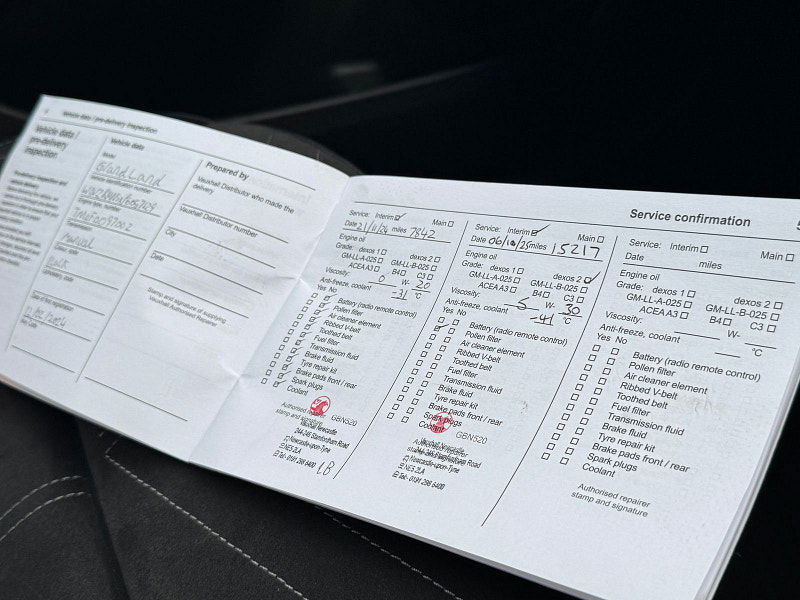 Vehicle data / pre-delivery inspection
Vehicle data /
pre-delivery
inspection
Vehicle data
Model
Grandland
Manual
Prepared by
Vauxhall Distributor who made the
delivery
Vauxhall Distributor number
City
Date
Stamp and signature of supplying
Vauxhall Authorised Repairer
Service confirmation
Service: Interim Main
Date 21/11/24 miles 7842
Engine oil
Grade: dexos 1 dexos 2
GM-LL-A-025 GM-LL-B-025
ACEA A3 B4 C3
Viscosity: 0 W- 20
Anti-freeze, coolant -31 °C
Yes No
Battery (radio remote control)
Pollen filter
Air cleaner element
Ribbed V-belt
Toothed belt
Fuel filter
Transmission fluid
Brake fluid
Tyre repair kit
Brake pads front / rear
Spark plugs
Coolant
Authorised repairer
stamp and signature
GBN520
Vauxhall Newcastle
244-246 Stamfordham Road
Newcastle-upon-Tyne
NE5 2LA
Tel: 0191 298 6400
Service: Interim Main
Date 06/10/25 miles 15217
Engine oil
Grade: dexos 1 dexos 2
GM-LL-A-025 GM-LL-B-025
ACEA A3 B4 C3
Viscosity: 5 W- 30
Anti-freeze, coolant -41 °C
Yes No
Battery (radio remote control)
Pollen filter
Air cleaner element
Ribbed V-belt
Toothed belt
Fuel filter
Transmission fluid
Brake fluid
Tyre repair kit
Brake pads front / rear
Spark plugs
Coolant
GBN520
Vauxhall Newcastle
Authorised repairer
244-246 Stamfordham Road
stamp and signature
Newcastle-upon-Tyne
NE5 2LA
Tel: 0191 298 6400
Service: Interim Main
Date miles
Engine oil
Grade: dexos 1 dexos 2
GM-LL-A-025 GM-LL-B-025
ACEA A3 B4 C3
Viscosity: W-
Anti-freeze, coolant °C
Yes No
Battery (radio remote control)
Pollen filter
Air cleaner element
Ribbed V-belt
Toothed belt
Fuel filter
Transmission fluid
Brake fluid
Tyre repair kit
Brake pads front / rear
Spark plugs
Coolant
Authorised repairer
stamp and signature